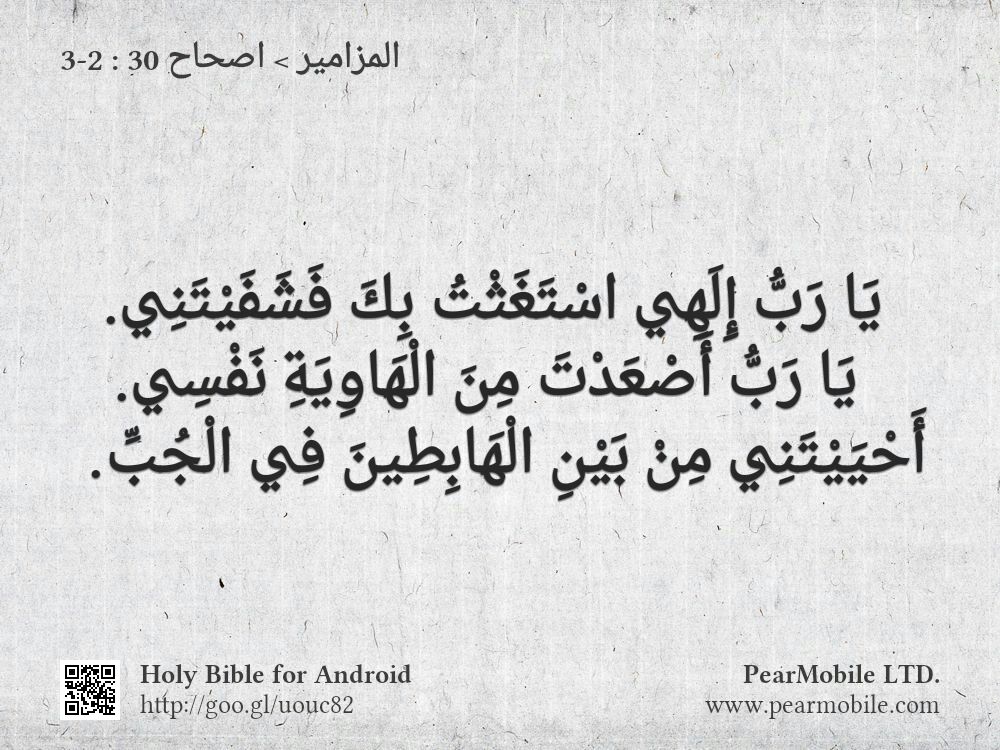 المزامير > اصحاح 30 : 2-3
يَا رَبُّ إِلَهِي اسْتَغَثْتُ بِكَ فَشَفَيْتَنِي.
يَا رَبُّ أَصْعَدْتَ مِنَ الْهَاوِيَةِ نَفْسِي.
أَحْيَيْتَنِي مِنْ بَيْنِ الْهَابِطِينَ فِي الْجُبِّ.
Holy Bible for Android
http://goo.gl/uouc82
PearMobile LTD.
www.pearmobile.com